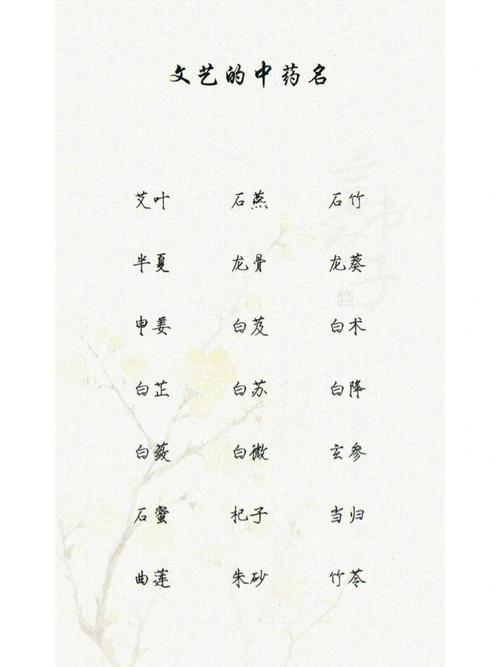 文艺的中药名
艾叶 石燕 石竹
半夏 龙骨 龙葵
申姜 白芨 白术
白芷 白苏 白降
白蔹 白微 玄参
石蜜 杞子 当归
曲莲 朱砂 竹苓